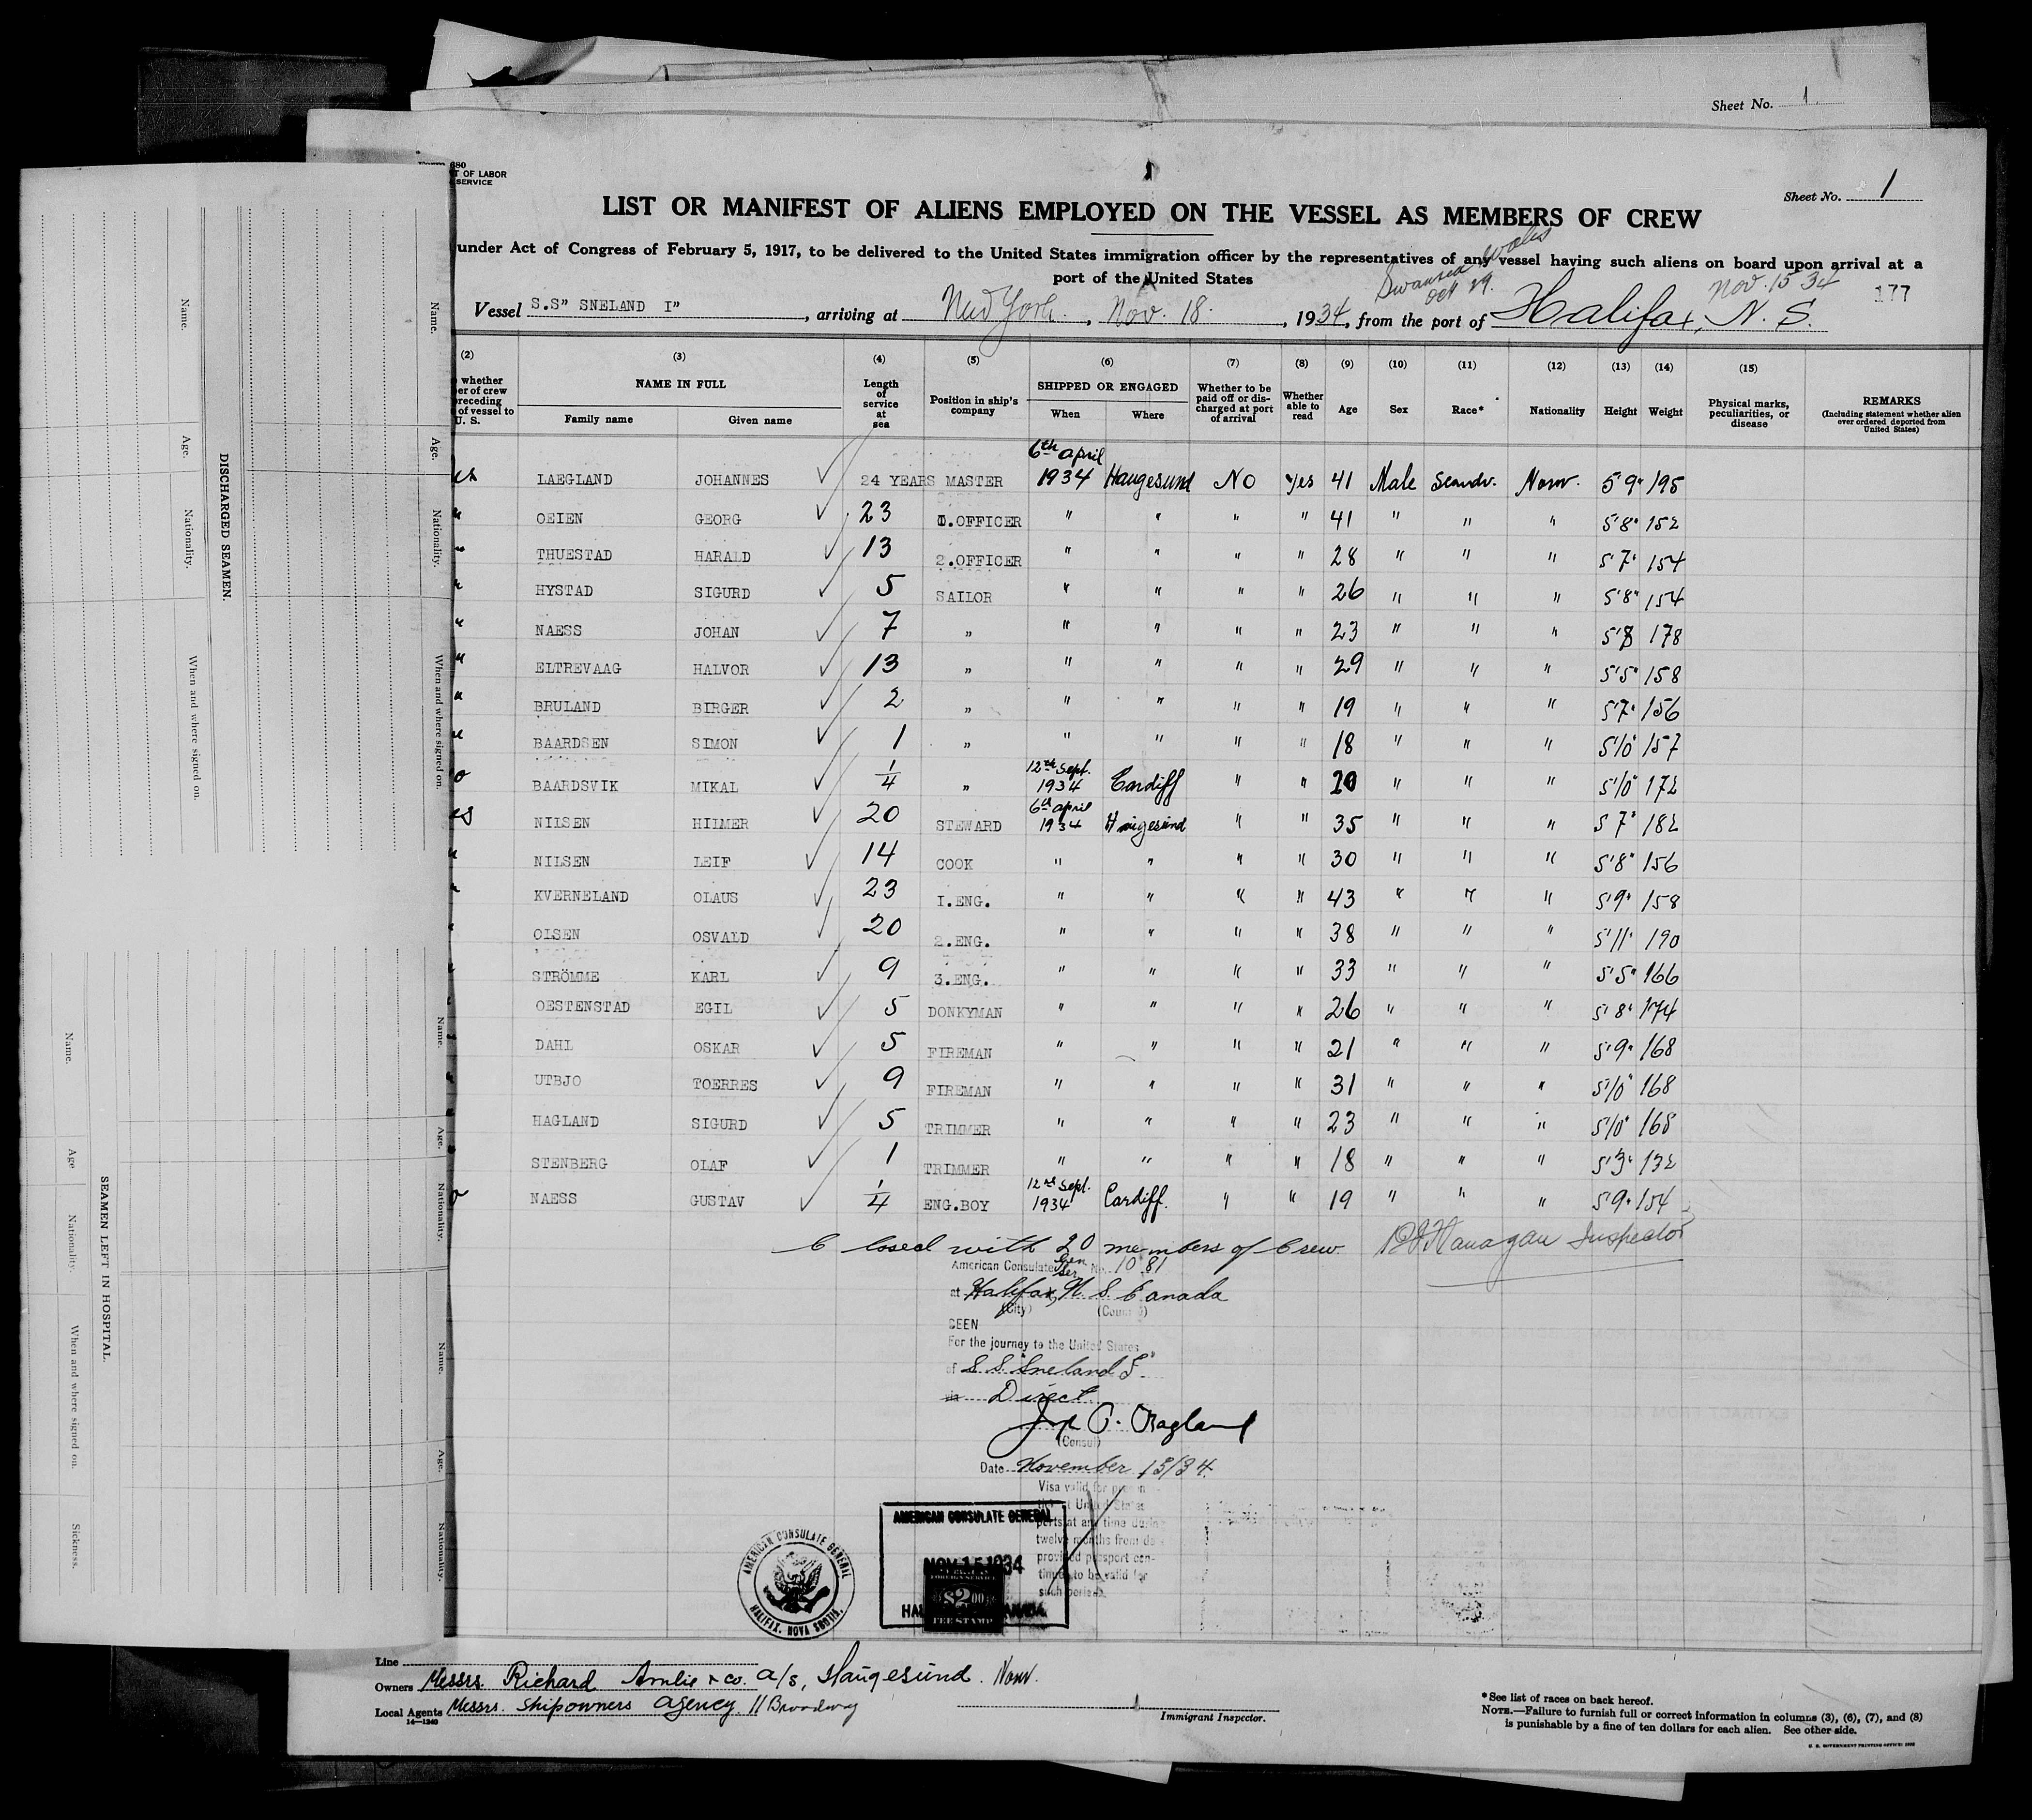 Sheet No. 1
Form 680
T OF LABOR
SERVICE
Sheet No. 1
LIST OR MANIFEST OF ALIENS EMPLOYED ON THE VESSEL AS MEMBERS OF CREW
under Act of Congress of February 5, 1917, to be delivered to the United States immigration officer by the representatives of any vessel having such aliens on board upon arrival at a
port of the United States
Swansea Wales
Oct 29.
Nov. 15 34
177
Vessel S.S" SNELAND I", arriving at New York, Nov. 18, 1934, from the port of Halifax, N. S.
(2) (3) (4) (5) (6) (7) (8) (9) (10) (11) (12) (13) (14) (15)
whether er of crew preceding of vessel to U. S.
NAME IN FULL
Family name Given name
Length of service at sea
Position in ship's company
SHIPPED OR ENGAGED
When Where
Whether to be paid off or discharged at port of arrival
Whether able to read
Age Sex Race* Nationality Height Weight
Physical marks, peculiarities, or disease
REMARKS
(Including statement whether alien ever ordered deported from United States)
LAEGLAND JOHANNES 24 YEARS MASTER 6th april 1934 Haugesund NO Yes 41 Male Scandv. Norw. 5'9" 195
" OEIEN GEORG 23 I.OFFICER " " " " 41 " " " 5'8" 152
" THUESTAD HARALD 13 2.OFFICER " " " " 28 " " " 5'7" 154
" HYSTAD SIGURD 5 SAILOR " " " " 26 " " " 5'8" 154
" NAESS JOHAN 7 " " " " " 23 " " " 5'8 178
" ELTREVAAG HALVOR 13 " " " " " 29 " " " 5'5" 158
" BRULAND BIRGER 2 " " " " " 19 " " " 5'7" 156
" BAARDSEN SIMON 1 " " " " " 18 " " " 5'10" 157
o BAARDSVIK MIKAL 1/4 " 12th Sept. 1934 Cardiff " " 20 " " " 5'10" 172
es NILSEN HILMER 20 STEWARD 6th april 1934 Haugesund " " 35 " " " 5 7" 182
" NILSEN LEIF 14 COOK " " " " 30 " " " 5'8" 156
" KVERNELAND OLAUS 23 I.ENG. " " " " 43 " " " 5'9" 158
" OLSEN OSVALD 20 2.ENG. " " " " 38 " " " 5'11" 190
" STRÖMME KARL 9 3.ENG. " " " " 33 " " " 5'5" 166
" OESTENSTAD EGIL 5 DONKYMAN " " " " 26 " " " 5'8" 174
" DAHL OSKAR 5 FIREMAN " " " " 21 " " " 5'9" 168
" UTBJO TOERRES 9 FIREMAN " " " " 31 " " " 5'10" 168
" HAGLAND SIGURD 5 TRIMMER " " " " 23 " " " 5'10" 168
" STENBERG OLAF 1 TRIMMER " " " " 18 " " " 5'3" 132
o NAESS GUSTAV 1/4 ENG.BOY 12th Sept. 1934 Cardiff. " " 19 " " " 5'9" 154
Closed with 20 members of Crew
Flanagan Inspector
American Consulate Gen
Ser. No. 1081
at Halifax, N. S. Canada
(City) (Country)
SEEN
For the journey to the United States
of S. S. "Sneland I"
via Direct
(Consul)
Date November 15/34.
Visa valid for
United States
ports at any time during
twelve months from date
provided passport con-
tinues to be valid for
such period.
AMERICAN CONSULATE GENERAL
HALIFAX, NOVA SCOTIA.
AMERICAN CONSULATE GENERAL
NOV 15 1934
FOREIGN SERVICE
$2.00
FEE STAMP
Line
Owners Messrs. Richard Amlie & co. a/s, Haugesund. Norw.
Local Agents Messrs. Shipowners agency. 11 Broadway
14—1240
Immigrant Inspector.
*See list of races on back hereof.
NOTE.—Failure to furnish full or correct information in columns (3), (6), (7), and (8)
is punishable by a fine of ten dollars for each alien. See other side.
DISCHARGED SEAMEN.
Name. Age. Nationality. When and where signed on.
Name. Age. Nationality. When and where signed on.
SEAMEN LEFT IN HOSPITAL.
Name. Age Nationality. When and where signed on. Sickness.
Name. Age. Nationality.
Name. Age. Nationality.